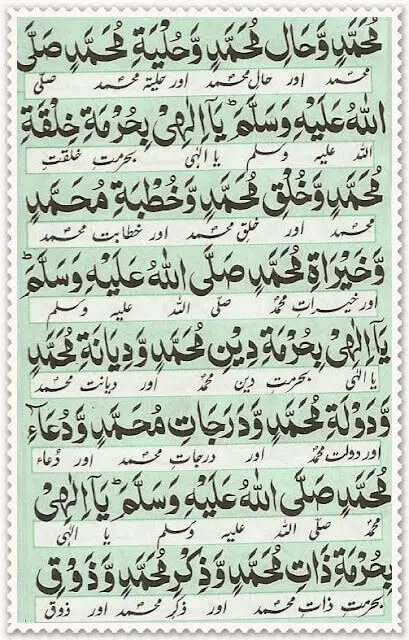 مُحَمَّدٍ وَّحَالِ مُحَمَّدٍ وَّحُلْيَةِ مُحَمَّدٍ صَلَّى
محمد اور حال محمد اور حلیۃ محمد صلی
اللهُ عَلَيْهِ وَسَلَّمَ ؕ يَآ اِلٰهِىْ بِحُرْمَةِ خِلْقَةِ
اللہ علیہ وسلم یا الٰہی بحرمت خلقت
مُحَمَّدٍ وَّخُلْقِ مُحَمَّدٍ وَّخُطْبَةِ مُحَمَّدٍ
محمد اور خلق محمد اور خطابت محمد
وَّخَيْرَاةِ مُحَمَّدٍ صَلَّى اللهُ عَلَيْهِ وَسَلَّمَ ؕ
اور خیرات محمد صلی اللہ علیہ وسلم
يَآ اِلٰهِىْ بِحُرْمَةِ دِيْنِ مُحَمَّدٍ وَّدِيَانَةِ مُحَمَّدٍ
یا الٰہی بحرمت دین محمد اور دیانت محمد
وَّدَوْلَةِ مُحَمَّدٍ وَّدَرَجَاتِ مُحَمَّدٍ وَّدُعَآءِ
اور دولت محمد اور درجات محمد اور دُعاء
مُحَمَّدٍ صَلَّى اللهُ عَلَيْهِ وَسَلَّمَ ؕ يَآ اِلٰهِىْ
محمد صلی اللہ علیہ وسلم یا الٰہی
بِحُرْمَةِ ذَاتِ مُحَمَّدٍ وَّذِكْرِ مُحَمَّدٍ وَّذَوْقِ
بحرمت ذات محمد اور ذکر محمد اور ذوق